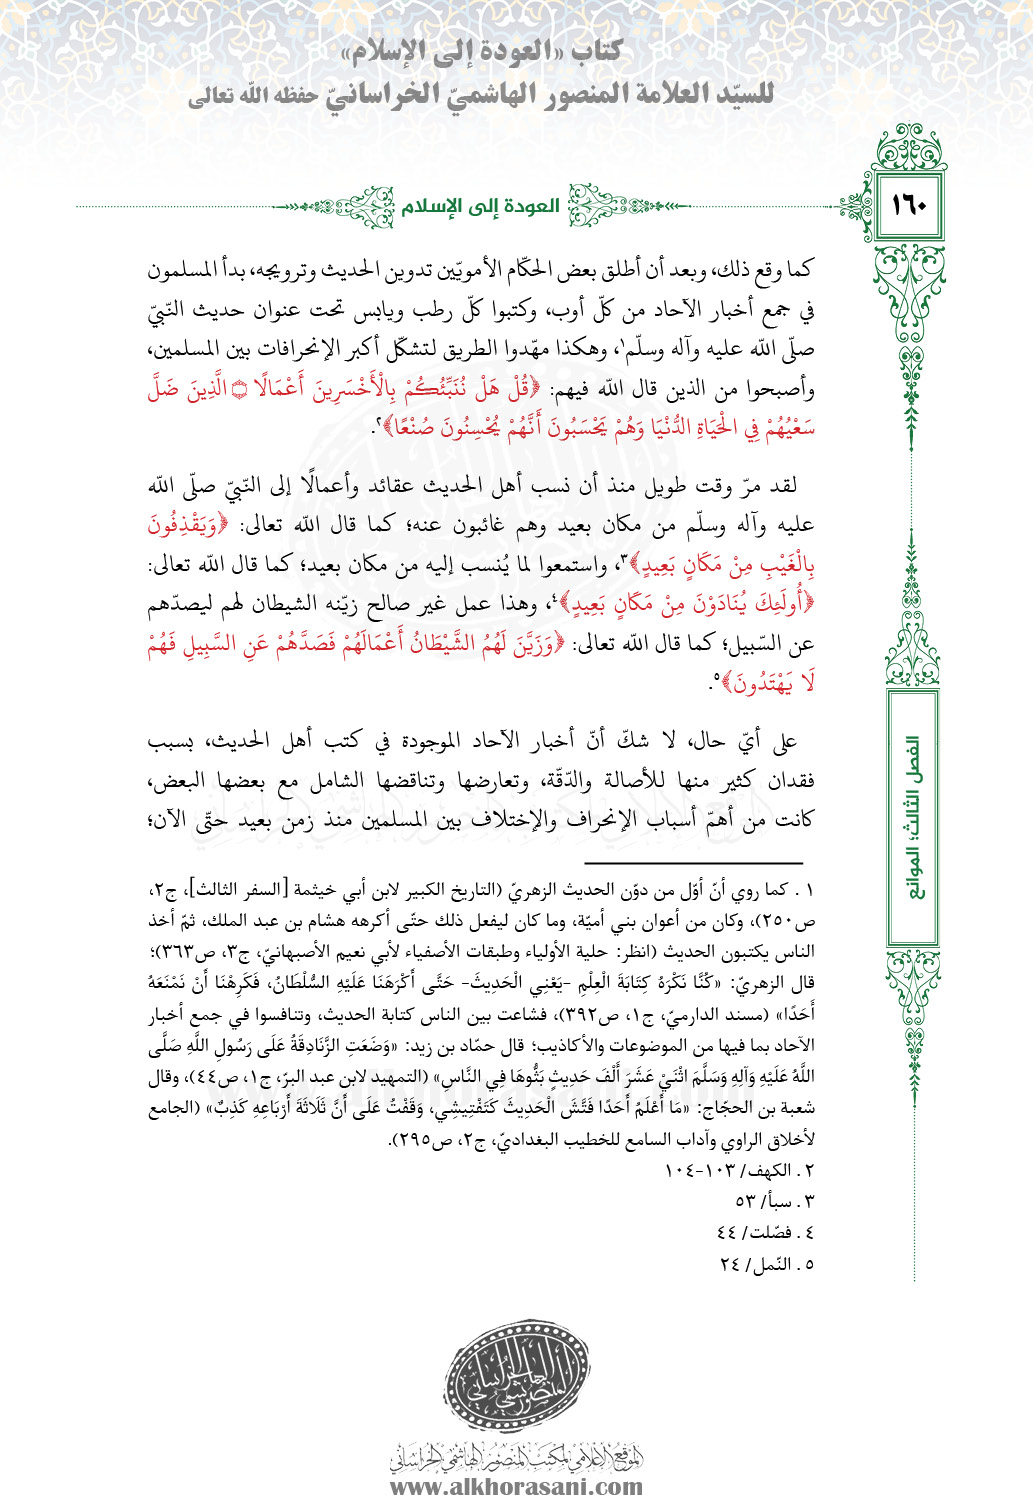 كتاب «العودة إلى الإسلام»
للسيّد العلامة المنصور الهاشميّ الخراسانيّ حفظه الله تعالى
١٦٠
العودة إلى الإسلام
كما وقع ذلك، وبعد أن أطلق بعض الحكّام الأمويّين تدوين الحديث وترويجه، بدأ المسلمون
في جمع أخبار الآحاد من كلّ أوب، وكتبوا كلّ رطب ويابس تحت عنوان حديث النّبيّ
صلّى الله عليه وآله وسلّم١، وهكذا مهّدوا الطريق لتشكّل أكبر الإنحرافات بين المسلمين،
وأصبحوا من الذين قال الله فيهم: ﴿قُلْ هَلْ نُنَبِّئُكُمْ بِالْأَخْسَرِينَ أَعْمَالًا ۝ الَّذِينَ ضَلَّ
سَعْيُهُمْ فِي الْحَيَاةِ الدُّنْيَا وَهُمْ يَحْسَبُونَ أَنَّهُمْ يُحْسِنُونَ صُنْعًا﴾٢.
لقد مرّ وقت طويل منذ أن نسب أهل الحديث عقائد وأعمالًا إلى النّبيّ صلّى الله
عليه وآله وسلّم من مكان بعيد وهم غائبون عنه؛ كما قال الله تعالى: ﴿وَيَقْذِفُونَ
بِالْغَيْبِ مِنْ مَكَانٍ بَعِيدٍ﴾٣، واستمعوا لما يُنسب إليه من مكان بعيد؛ كما قال الله تعالى:
﴿أُولَئِكَ يُنَادَوْنَ مِنْ مَكَانٍ بَعِيدٍ﴾٤، وهذا عمل غير صالح زيّنه الشيطان لهم ليصدّهم
عن السّبيل؛ كما قال الله تعالى: ﴿وَزَيَّنَ لَهُمُ الشَّيْطَانُ أَعْمَالَهُمْ فَصَدَّهُمْ عَنِ السَّبِيلِ فَهُمْ
لَا يَهْتَدُونَ﴾٥.
على أيّ حال، لا شكّ أنّ أخبار الآحاد الموجودة في كتب أهل الحديث، بسبب
فقدان كثير منها للأصالة والدّقّة، وتعارضها وتناقضها الشامل مع بعضها البعض،
كانت من أهمّ أسباب الإنحراف والإختلاف بين المسلمين منذ زمن بعيد حتّى الآن؛
الفصل الثالث؛ الموانع
١ . كما روي أنّ أوّل من دوّن الحديث الزهريّ (التاريخ الكبير لابن أبي خيثمة [السفر الثالث]، ج٢،
ص٢٥٠)، وكان من أعوان بني أميّة، وما كان ليفعل ذلك حتّى أكرهه هشام بن عبد الملك، ثمّ أخذ
الناس يكتبون الحديث (انظر: حلية الأولياء وطبقات الأصفياء لأبي نعيم الأصبهانيّ، ج٣، ص٣٦٣)؛
قال الزهريّ: «كُنَّا نَكْرَهُ كِتَابَةَ الْعِلْمِ -يَعْنِي الْحَدِيثَ- حَتَّى أَكْرَهَنَا عَلَيْهِ السُّلْطَانُ، فَكَرِهْنَا أَنْ نَمْنَعَهُ
أَحَدًا» (مسند الدارميّ، ج١، ص٣٩٢)، فشاعت بين الناس كتابة الحديث، وتنافسوا في جمع أخبار
الآحاد بما فيها من الموضوعات والأكاذيب؛ قال حمّاد بن زيد: «وَضَعَتِ الزَّنَادِقَةُ عَلَى رَسُولِ اللَّهِ صَلَّى
اللَّهُ عَلَيْهِ وَآلِهِ وَسَلَّمَ اثْنَيْ عَشَرَ أَلْفَ حَدِيثٍ بَثُّوهَا فِي النَّاسِ» (التمهيد لابن عبد البرّ، ج١، ص٤٤)، وقال
شعبة بن الحجّاج: «مَا أَعْلَمُ أَحَدًا فَتَّشَ الْحَدِيثَ كَتَفْتِيشِي، وَقَفْتُ عَلَى أَنَّ ثَلَاثَةَ أَرْبَاعِهِ كَذِبٌ» (الجامع
لأخلاق الراوي وآداب السامع للخطيب البغداديّ، ج٢، ص٢٩٥).
٢ . الكهف/ ١٠٣-١٠٤
٣ . سبأ/ ٥٣
٤ . فصّلت/ ٤٤
٥ . النّمل/ ٢٤
الموقع الإعلامي لمكتب المنصور الهاشمي الخراساني
www.alkhorasani.com